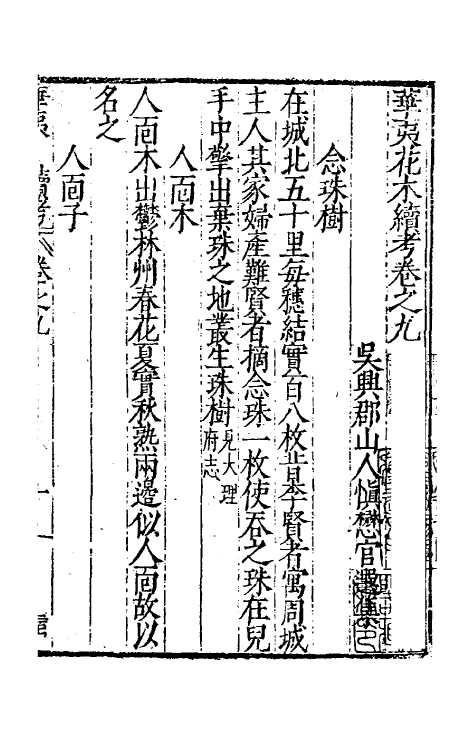 華夷花木續考卷之九
吳興郡山人慎懋官選集
念珠樹
在城北五十里每穗結實百八枚昔李賢者寓周城
主人其家婦產難賢者摘念珠一枚使吞之珠在兒
手中擎出棄珠之地叢生珠樹見大理府志
人面木
人面木出鬱林州春花夏實秋熟兩邊似人面故以
名之
人面子
華夷 續考 卷之九 一